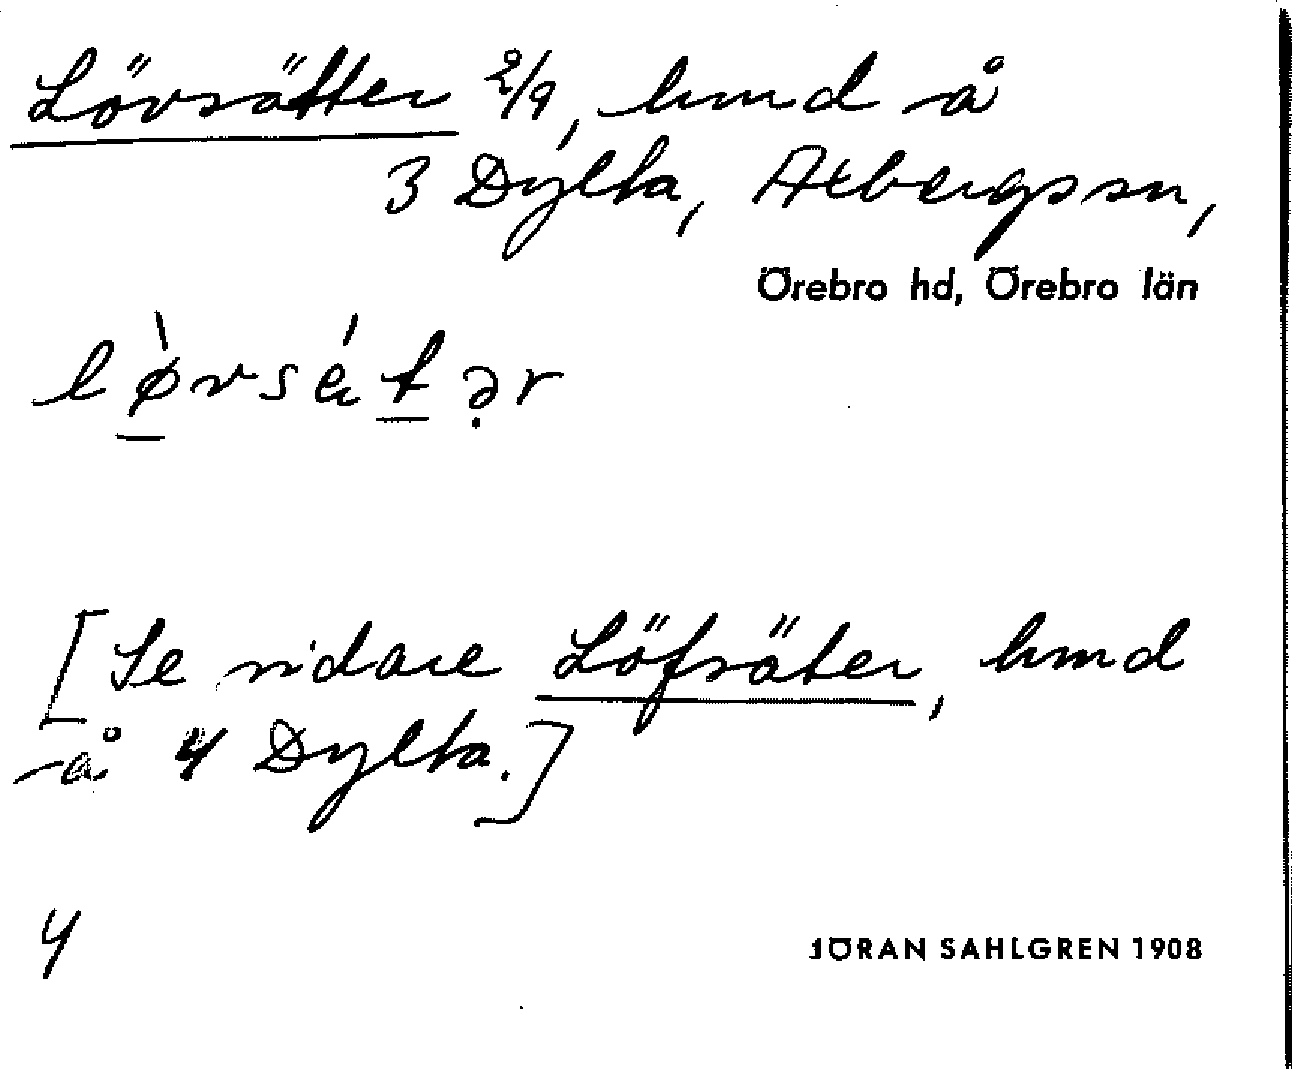 Lövsätter 2̊/9, hmd å
3 Dylta, Axbergs sn,
Örebro hd, Örebro län
lø̀vsétər
[Se vidare Löfsäter, hmd
å 4 Dylta.]
4
JÖRAN SAHLGREN 1908